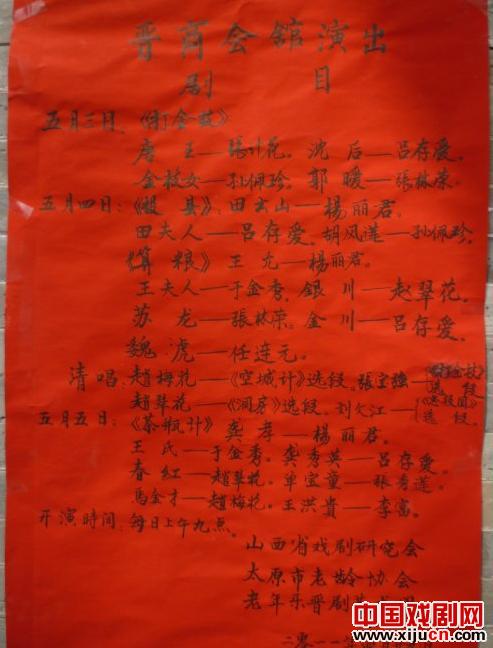 晋商会館演出
剧 目
五月三日、《打金枝》
唐 王——張计花。沈 后——吕存爱。
金枝女——孙佩珍。郭 暧——張林荣。
五月四日：《换县》：田云山——楊丽君。
田夫人——吕存爱。胡凤莲——孙佩珍。
《算粮》王 允——楊丽君。
王夫人——于金秀。銀 川——赵翠花。
苏 龙——張林荣。金 川——吕存爱。
魏 虎——任连元。
清唱：趙梅花——《空城计》选段。張宝強——
趙翠花——《洞房》选段。刘欠江——
选段
五月五日：《茶瓶计》龚 孝——楊丽君。
王 氏——于金秀。龚秀英——吕存爱。
春 红——趙翠花。单宝童——張秀莲。
馬金才——趙梅花。王洪貴——李富。
开演时间：每日上午九点。
山西省戏剧研究会
太原市老龄协会
老年乐晋剧
二零一一年
中国戏剧网
www.xijucn.com